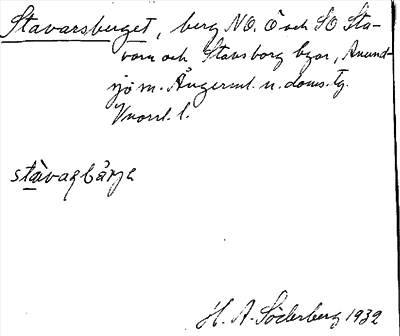 Stavarsberget, berg NO. Ö och SO Sta-
varn och Stavsborg byar, Anund-
sjö sn. Ångerml. n. doms. tg.
Vnorrl. l.
stàvaʂbǻrjɛ
H. A. Söderberg 1932